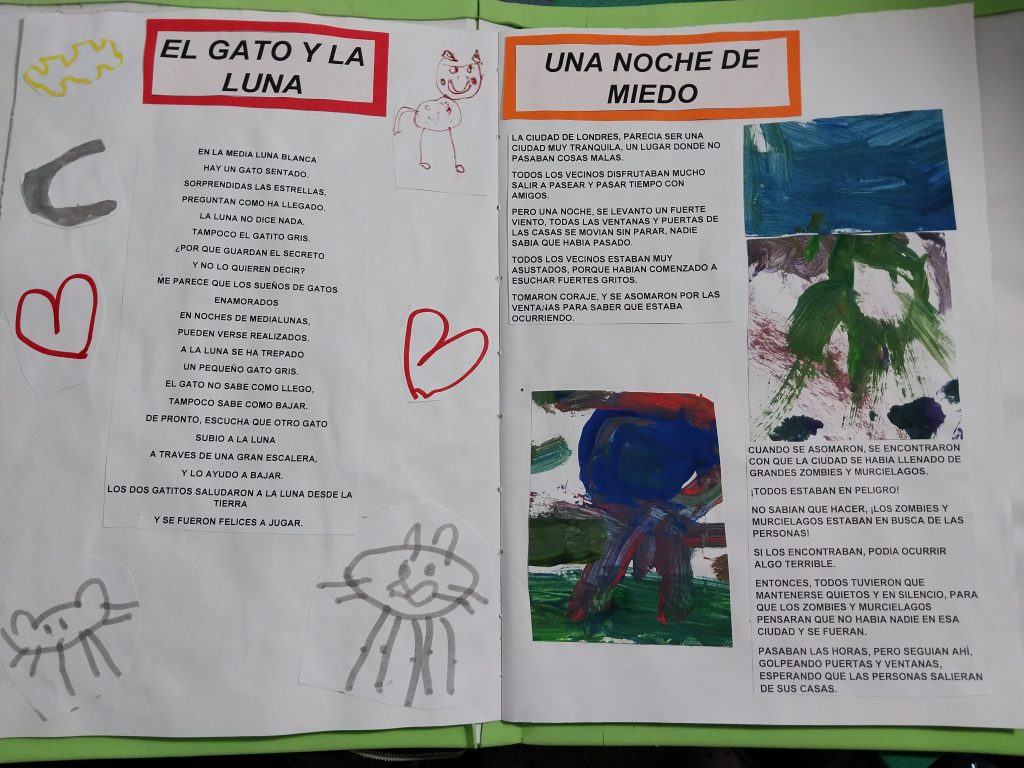 EL GATO Y LA
LUNA
EN LA MEDIA LUNA BLANCA
HAY UN GATO SENTADO.
SORPRENDIDAS LAS ESTRELLAS,
PREGUNTAN COMO HA LLEGADO.
LA LUNA NO DICE NADA.
TAMPOCO EL GATITO GRIS.
¿POR QUE GUARDAN EL SECRETO
Y NO LO QUIEREN DECIR?
ME PARECE QUE LOS SUEÑOS DE GATOS
ENAMORADOS
EN NOCHES DE MEDIALUNAS,
PUEDEN VERSE REALIZADOS.
A LA LUNA SE HA TREPADO
UN PEQUEÑO GATO GRIS.
EL GATO NO SABE COMO LLEGO,
TAMPOCO SABE COMO BAJAR.
DE PRONTO, ESCUCHA QUE OTRO GATO
SUBIO A LA LUNA
A TRAVES DE UNA GRAN ESCALERA,
Y LO AYUDO A BAJAR.
LOS DOS GATITOS SALUDARON A LA LUNA DESDE LA
TIERRA
Y SE FUERON FELICES A JUGAR.
UNA NOCHE DE
MIEDO
LA CIUDAD DE LONDRES, PARECIA SER UNA
CIUDAD MUY TRANQUILA, UN LUGAR DONDE NO
PASABAN COSAS MALAS.
TODOS LOS VECINOS DISFRUTABAN MUCHO
SALIR A PASEAR Y PASAR TIEMPO CON
AMIGOS.
PERO UNA NOCHE, SE LEVANTO UN FUERTE
VIENTO, TODAS LAS VENTANAS Y PUERTAS DE
LAS CASAS SE MOVIAN SIN PARAR, NADIE
SABIA QUE HABIA PASADO.
TODOS LOS VECINOS ESTABAN MUY
ASUSTADOS, PORQUE HABIAN COMENZADO A
ESUCHAR FUERTES GRITOS.
TOMARON CORAJE, Y SE ASOMARON POR LAS
VENTANAS PARA SABER QUE ESTABA
OCURRIENDO.
CUANDO SE ASOMARON, SE ENCONTRARON
CON QUE LA CIUDAD SE HABIA LLENADO DE
GRANDES ZOMBIES Y MURCIELAGOS.
¡TODOS ESTABAN EN PELIGRO!
NO SABIAN QUE HACER, ¡LOS ZOMBIES Y
MURCIELAGOS ESTABAN EN BUSCA DE LAS
PERSONAS!
SI LOS ENCONTRABAN, PODIA OCURRIR
ALGO TERRIBLE.
ENTONCES, TODOS TUVIERON QUE
MANTENERSE QUIETOS Y EN SILENCIO, PARA
QUE LOS ZOMBIES Y MURCIELAGOS
PENSARAN QUE NO HABIA NADIE EN ESA
CIUDAD Y SE FUERAN.
PASABAN LAS HORAS, PERO SEGUIAN AHÍ,
GOLPEANDO PUERTAS Y VENTANAS,
ESPERANDO QUE LAS PERSONAS SALIERAN
DE SUS CASAS.